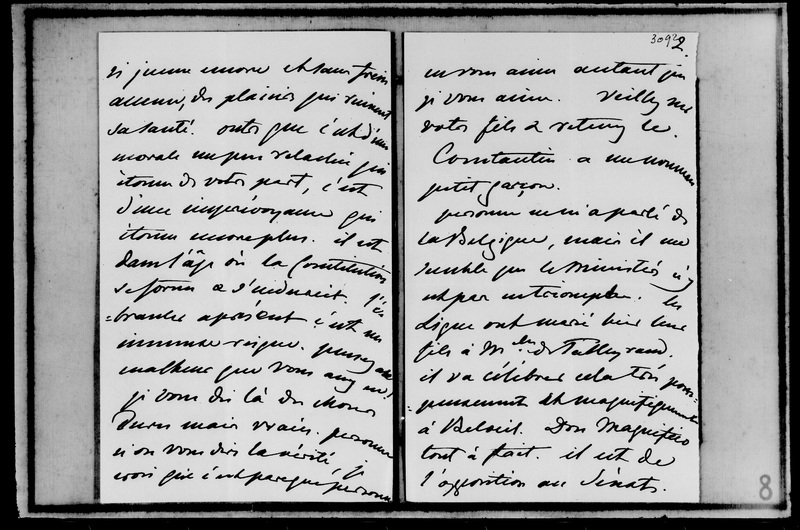 si jeune encore et sans frein
aucun, des plaisirs qui ruinent
sa santé. outre que c'est d'une
morale un peu relachée qui
étonne de votre part, c'est
d'une imprévoyance qui
étonne encore plus. il est
dans l'âge où la Constitution
se forme & s'endurcit. l'é=
=branler aprésent c'est un
immense risque. pensez au
malheur que vous
je vous dis là des choses
dures mais vraies. personne
ne vous dira la vérité, je
crois que c'est parceque personne
3092
2.
ne vous aime autant que
je vous aime. Veillez sur
votre fils & retenez le.
Constantin a un nouveau
petit garçon.
personne ne m'a parlé de
la Belgique, mais il me
semble que le Ministère n'y
est pas
Ligne ont marié hier leur
fils à Mlle de Talleyrand.
il va célébrer cela très pom=
=peusement et magnifiquement
à Beloeil. Don Magnifico
tout à fait. il est de
l'opposition au Sénat.
8